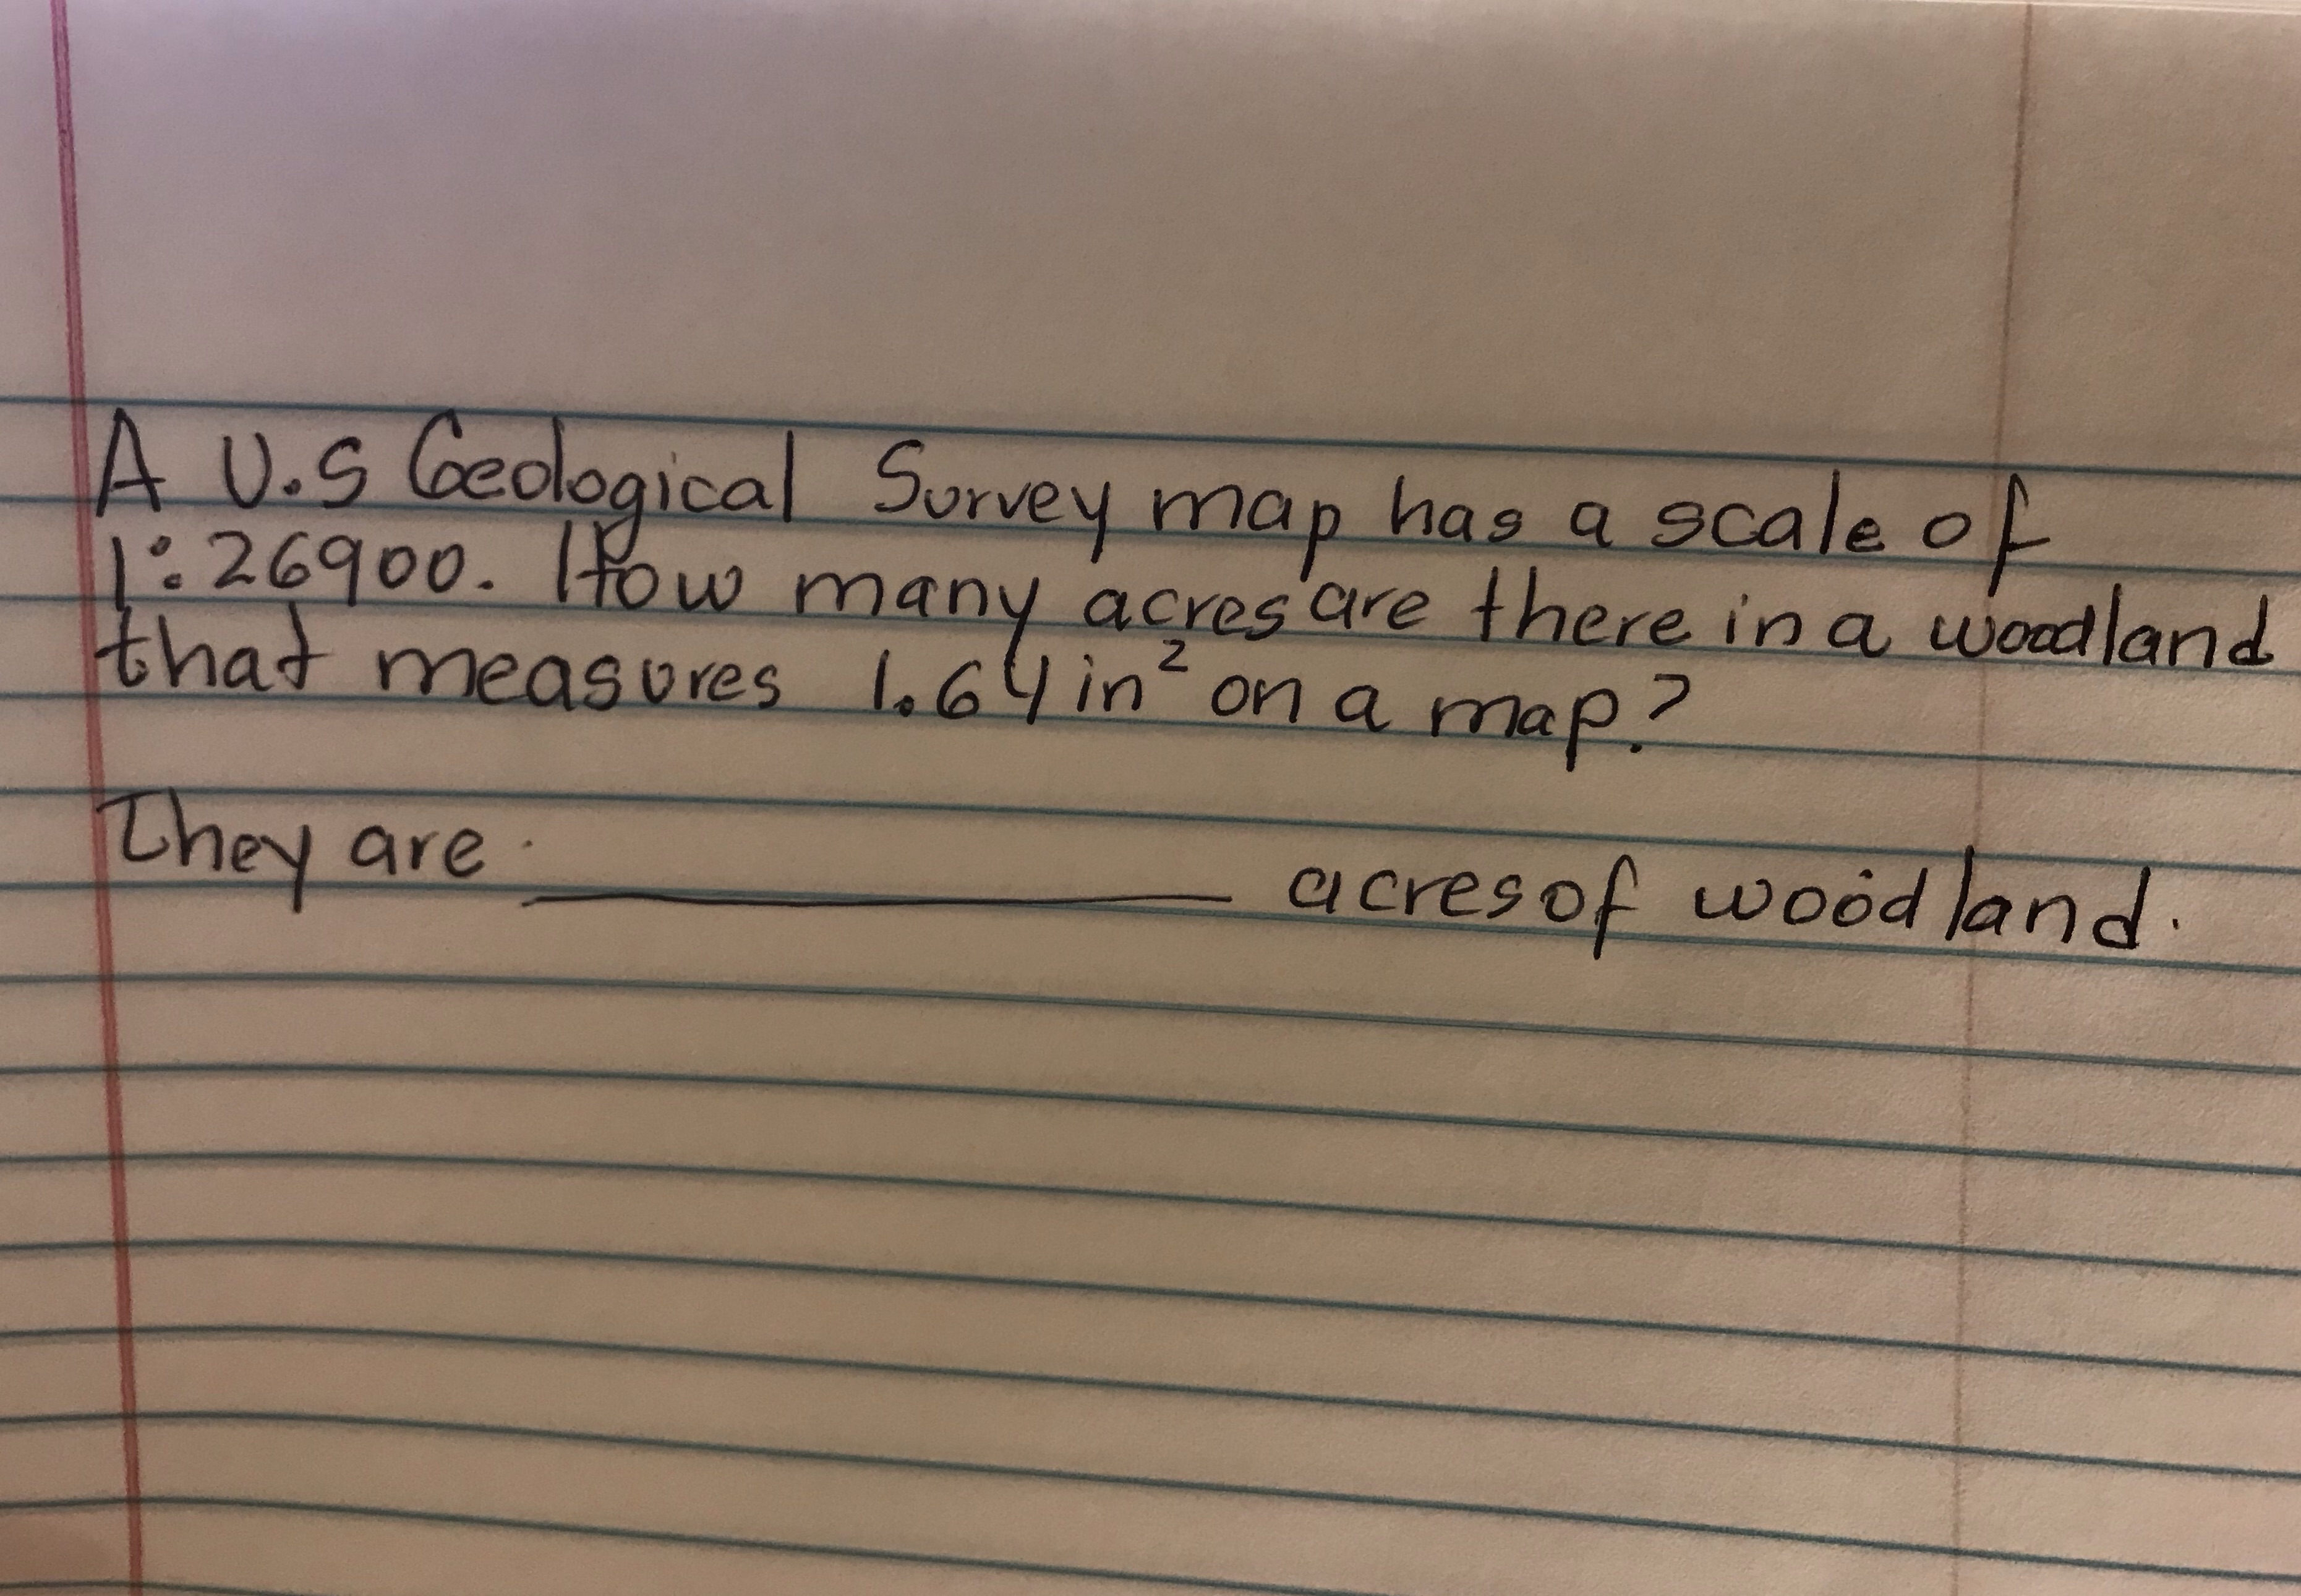 A U.S Geological Survey map has a scale of
1:26900. How many acres are there in a woodland
that measures 1.64 in² on a map?
They are __________ acres of woodland.